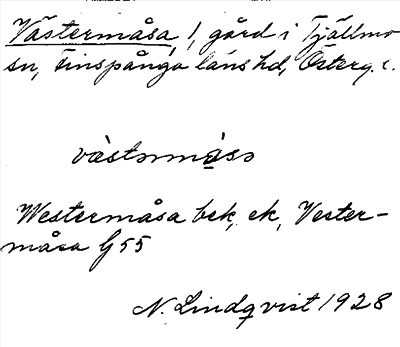 Västermåsa, 1, gård i Tjällmo
sn, Finspånga läns hd, Österg. l.
västərmåsə
Westermåsa bek, ek, Vester-
måsa G 55
N. Lindqvist 1928